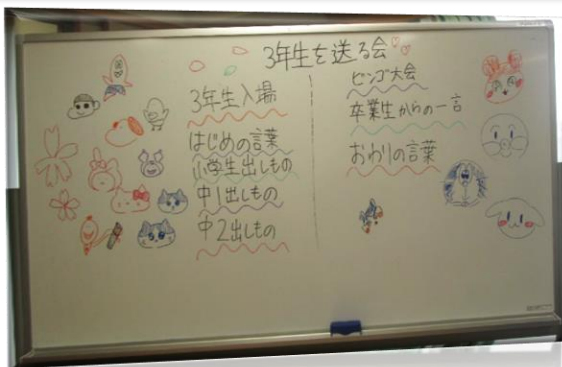 3年生を送る会
3年生入場
はじめの言葉
小学生出しもの
中1出しもの
中2出しもの
ビンゴ大会
卒業生からの一言
おわりの言葉